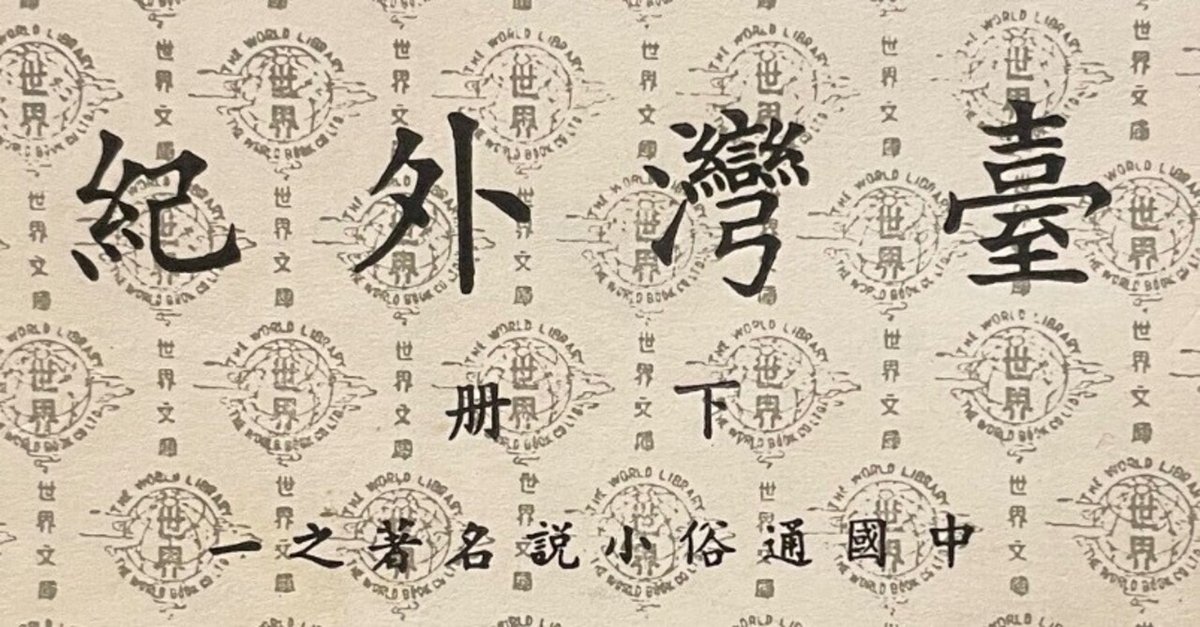 臺灣外紀
下冊
中國通俗小説名著之一
世界文庫
世界
THE WORLD LIBRARY
THE WORLD BOOK CO LTD